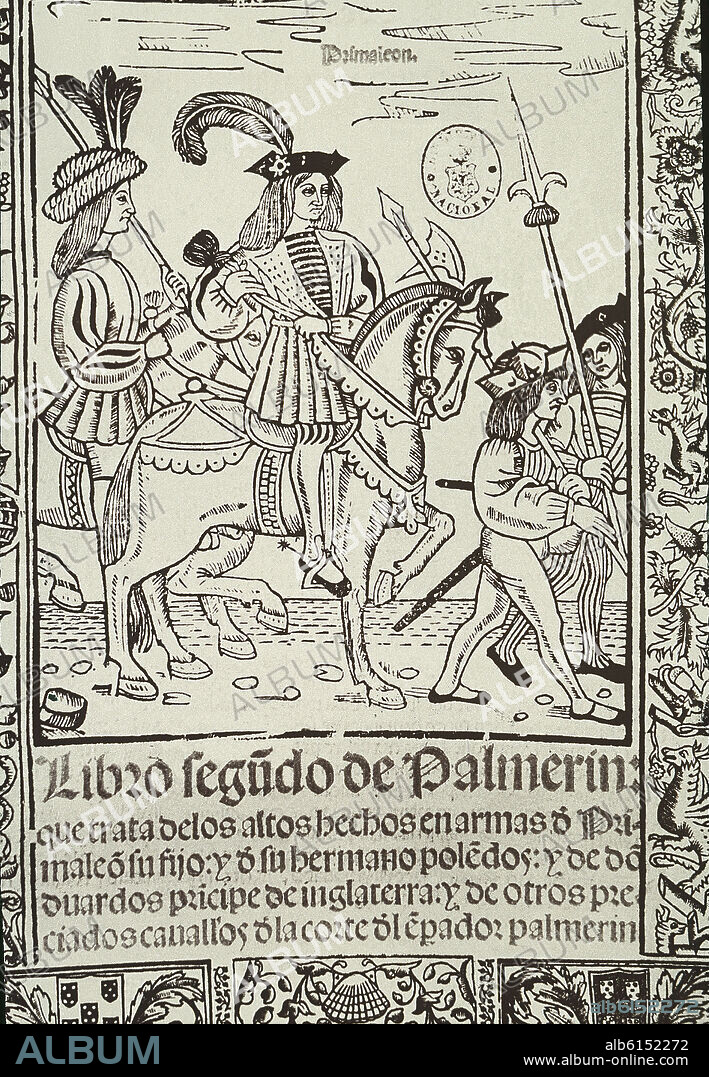 Primaleon.
NACIONAL
Libro segũdo de Palmerin:
que trata delos altos hechos en armas d̃ Pri-
maleõ su fijo: y d̃ su hermano polẽdos: y de dõ
duardos prĩcipe de inglaterra: y de otros pre-
ciados cauall'os d̃ la corte d̃l ẽpador palmerin
ALBUM
alb6152272
ALBUM
alb6152272
www.album-online.com